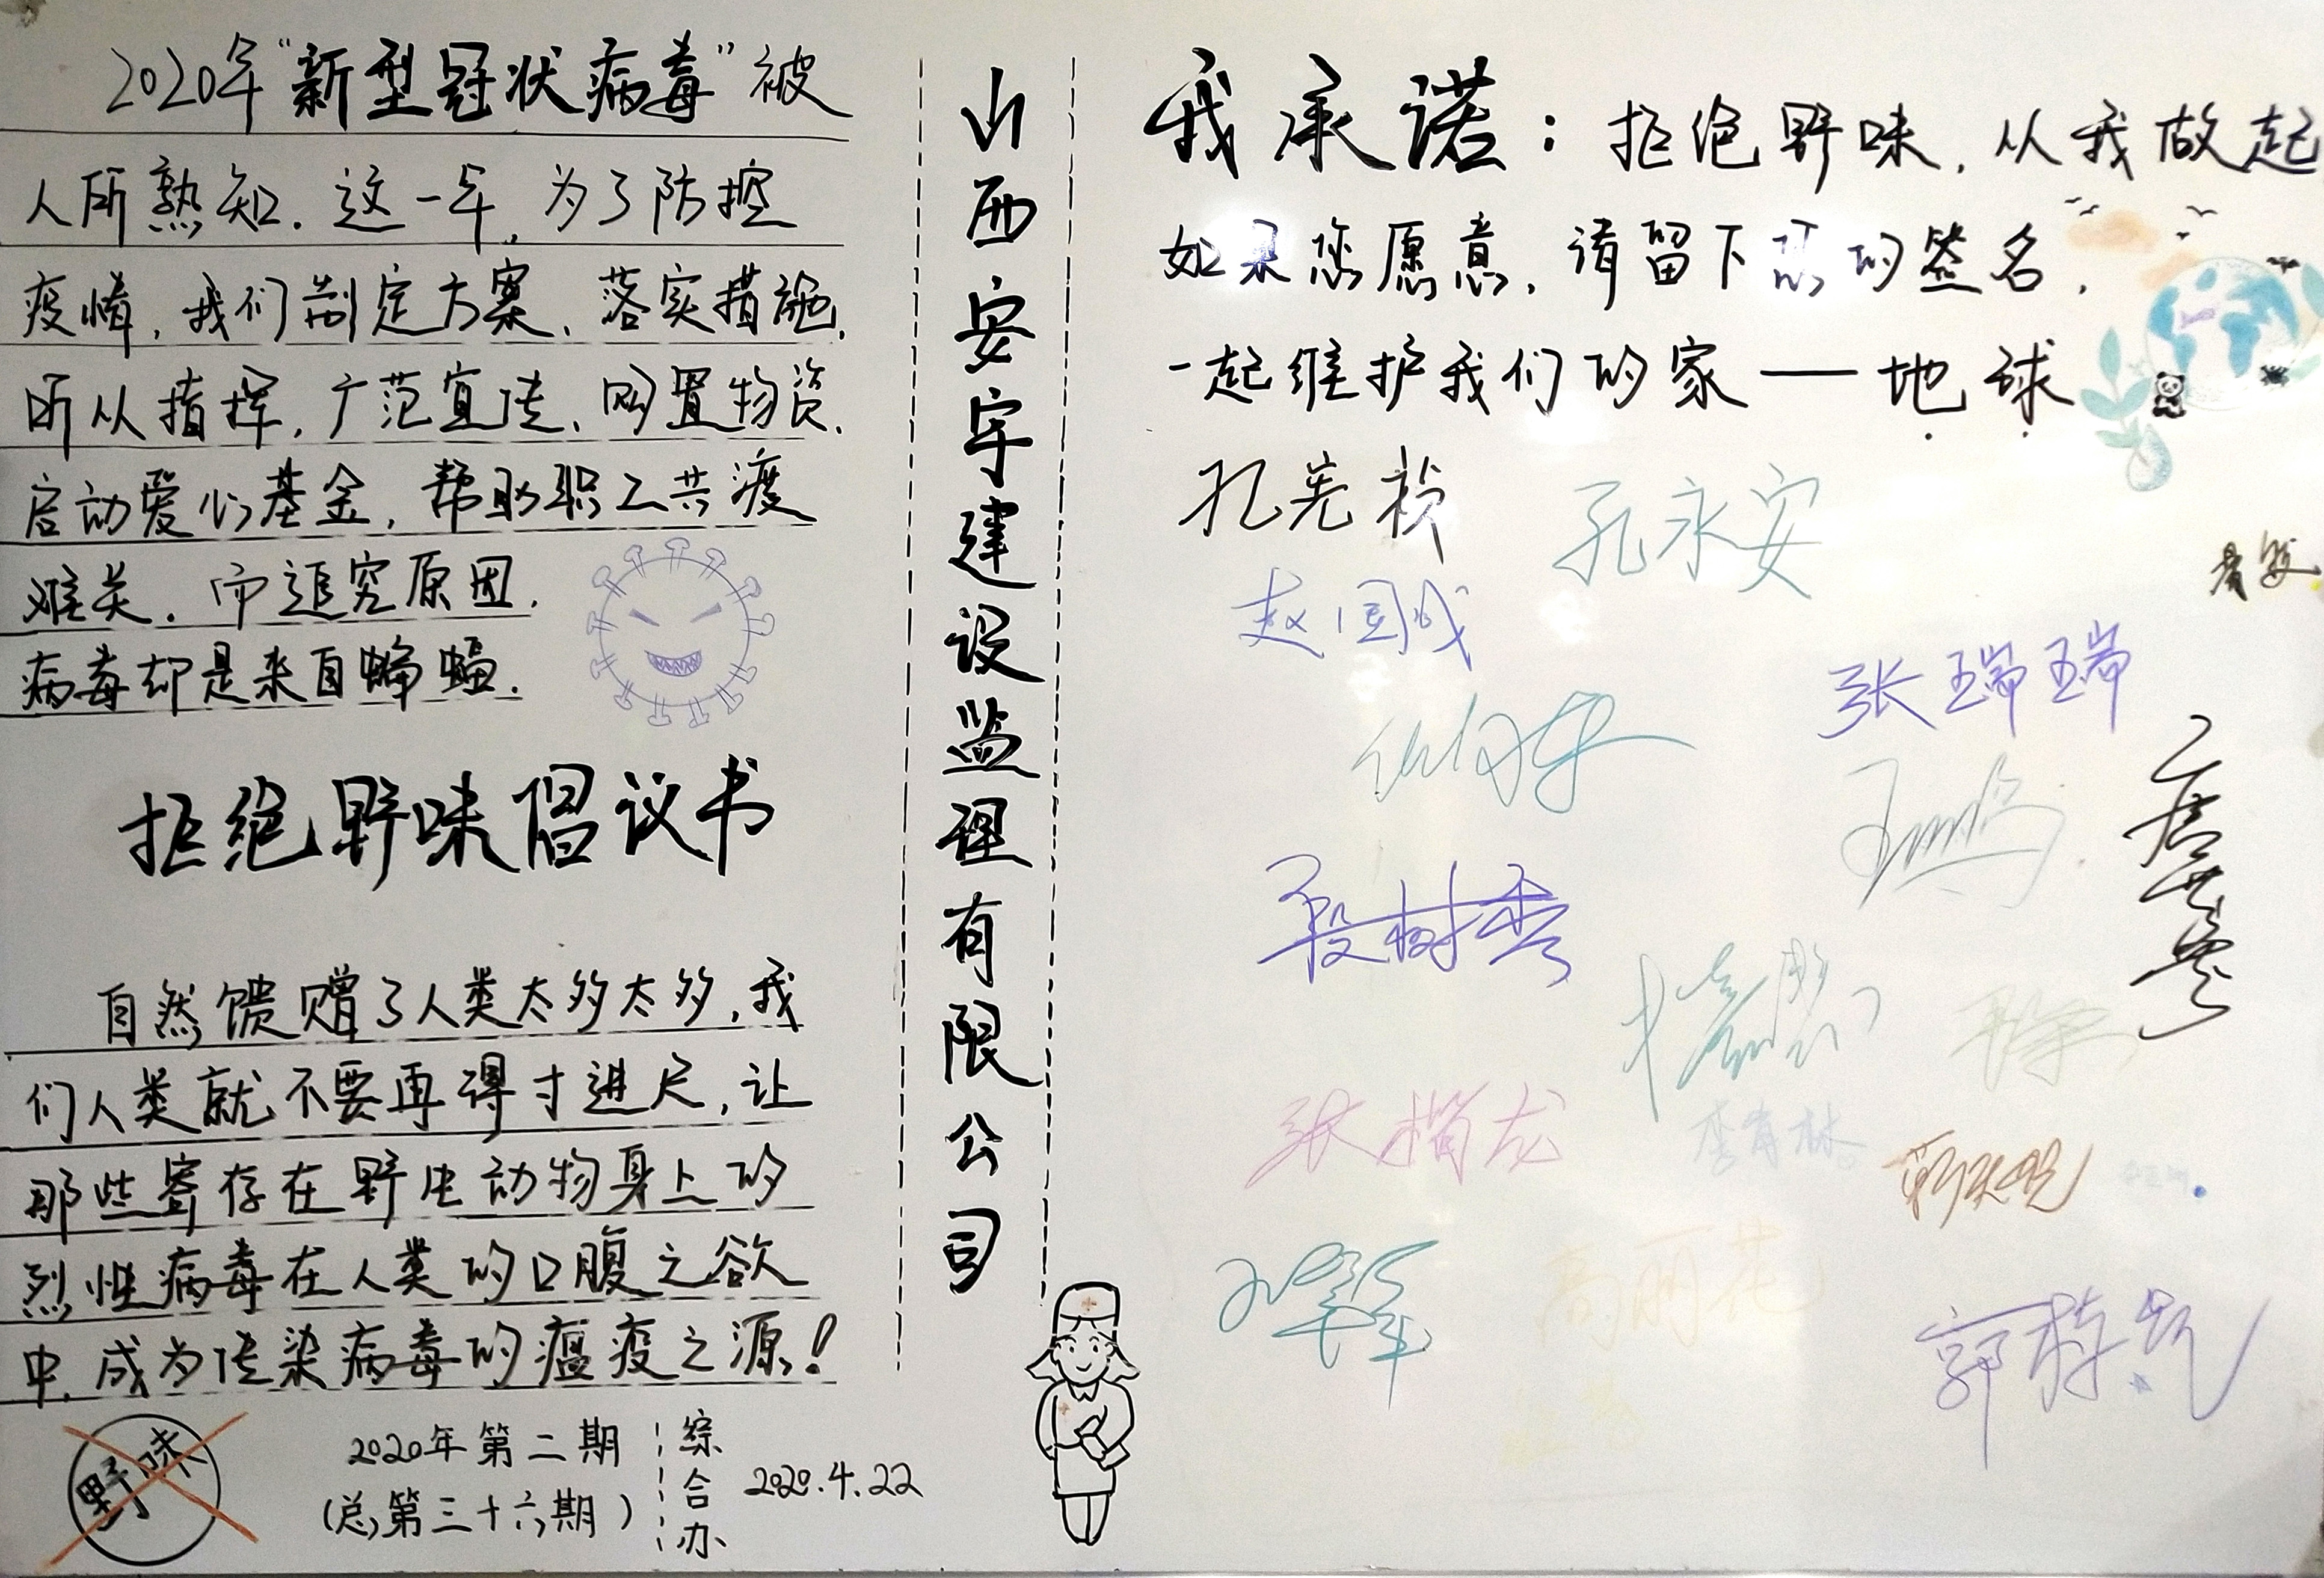 2020年“新型冠状病毒”被
人所熟知.这一年,为了防控
疫情,我们制定方案、落实措施、
听从指挥,广范宣传、购置物资、
启动爱心基金,帮助职工共渡
难关.而追究原因.
病毒却是来自蝙蝠.
拒绝野味倡议书
自然馈赠了人类太多太多,我
们人类就不要再得寸进尺,让
那些寄存在野生动物身上的
烈性病毒在人类的口腹之欲
中,成为传染病毒的瘟疫之源!
野味
2020年第二期
(总第三十六期)
综合办
2020.4.22
山西安宇建设监理有限公司
我承诺:拒绝野味,从我做起
如果您愿意,请留下您的签名,
一起维护我们的家——地球
孔宪祯
孔永安
赵国成
张瑞瑞
段树香
高丽花